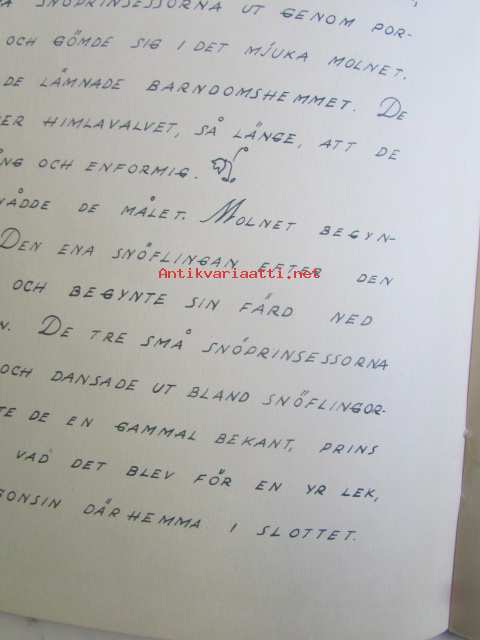 SNÖPRINSESSORNA UT GENOM POR-
OCH GÖMDE SIG I DET MJUKA MOLNET.
DE LÄMNADE BARNDOMSHEMMET. DE
HIMLAVALVET, SÅ LÄNGE, ATT DE
OCH ENFORMIG.
NÅDDE DE MÅLET. MOLNET BEGYN-
DEN ENA SNÖFLINGAN EFTER DEN
Antikvariaatti.net
OCH BEGYNTE SIN FÄRD NED
DE TRE SMÅ SNÖPRINSESSORNA
OCH DANSADE UT BLAND SNÖFLINGOR-
DE EN GAMMAL BEKANT, PRINS
VAD DET BLEV FÖR EN YR LEK,
DÄRHEMMA I SLOTTET.